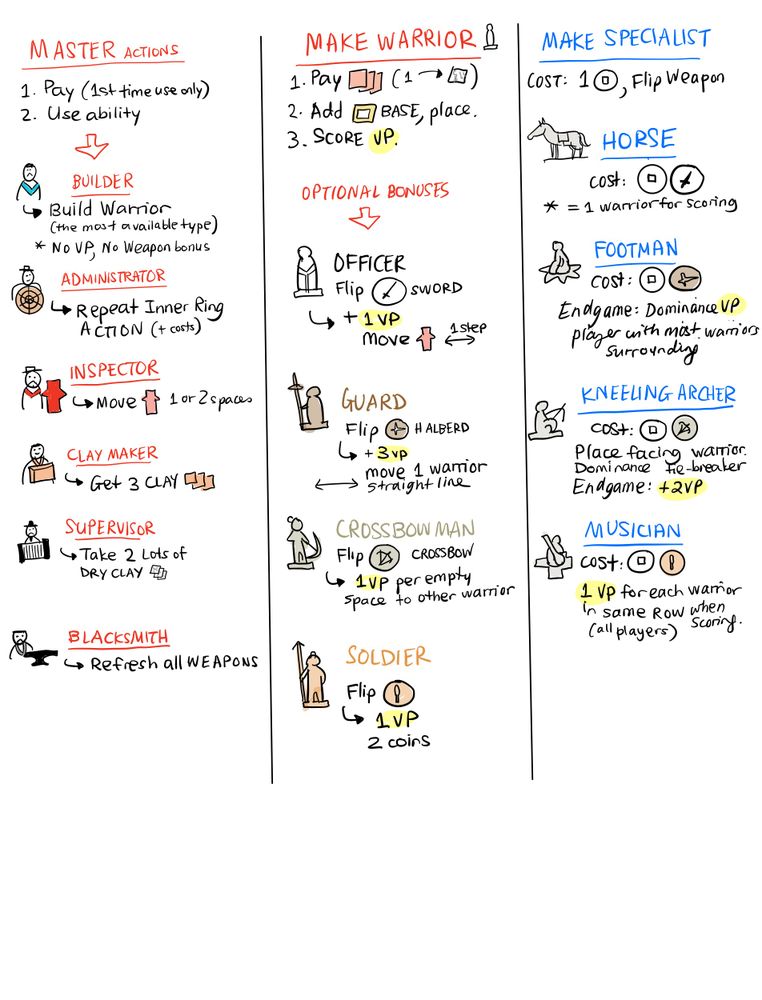 MASTER ACTIONS
1. Pay (1st time use only)
2. Use ability
BUILDER
Build Warrior
(the most available type)
* No VP, No Weapon bonus
ADMINISTRATOR
Repeat Inner Ring
ACTION (+ costs)
INSPECTOR
Move 1 or 2 spaces
CLAY MAKER
Get 3 CLAY
SUPERVISOR
Take 2 Lots of
DRY CLAY
BLACKSMITH
Refresh all WEAPONS
MAKE WARRIOR
1. Pay (1 → )
2. Add BASE, place.
3. SCORE VP.
OPTIONAL BONUSES
OFFICER
Flip SWORD
+ 1 VP
Move 1 step
GUARD
Flip HALBERD
+ 3 VP
move 1 warrior
straight line
CROSSBOWMAN
Flip CROSSBOW
1 VP per empty
space to other warrior
SOLDIER
Flip
1 VP
2 coins
MAKE SPECIALIST
COST: 1 , Flip Weapon
HORSE
cost:
* = 1 warrior for scoring
FOOTMAN
COST:
Endgame: Dominance VP
player with most warriors
surrounding
KNEELING ARCHER
COST:
Place facing warrior.
Dominance tie-breaker
Endgame: +2VP
MUSICIAN
COST:
1 VP for each warrior
in same Row when
(all players) scoring.